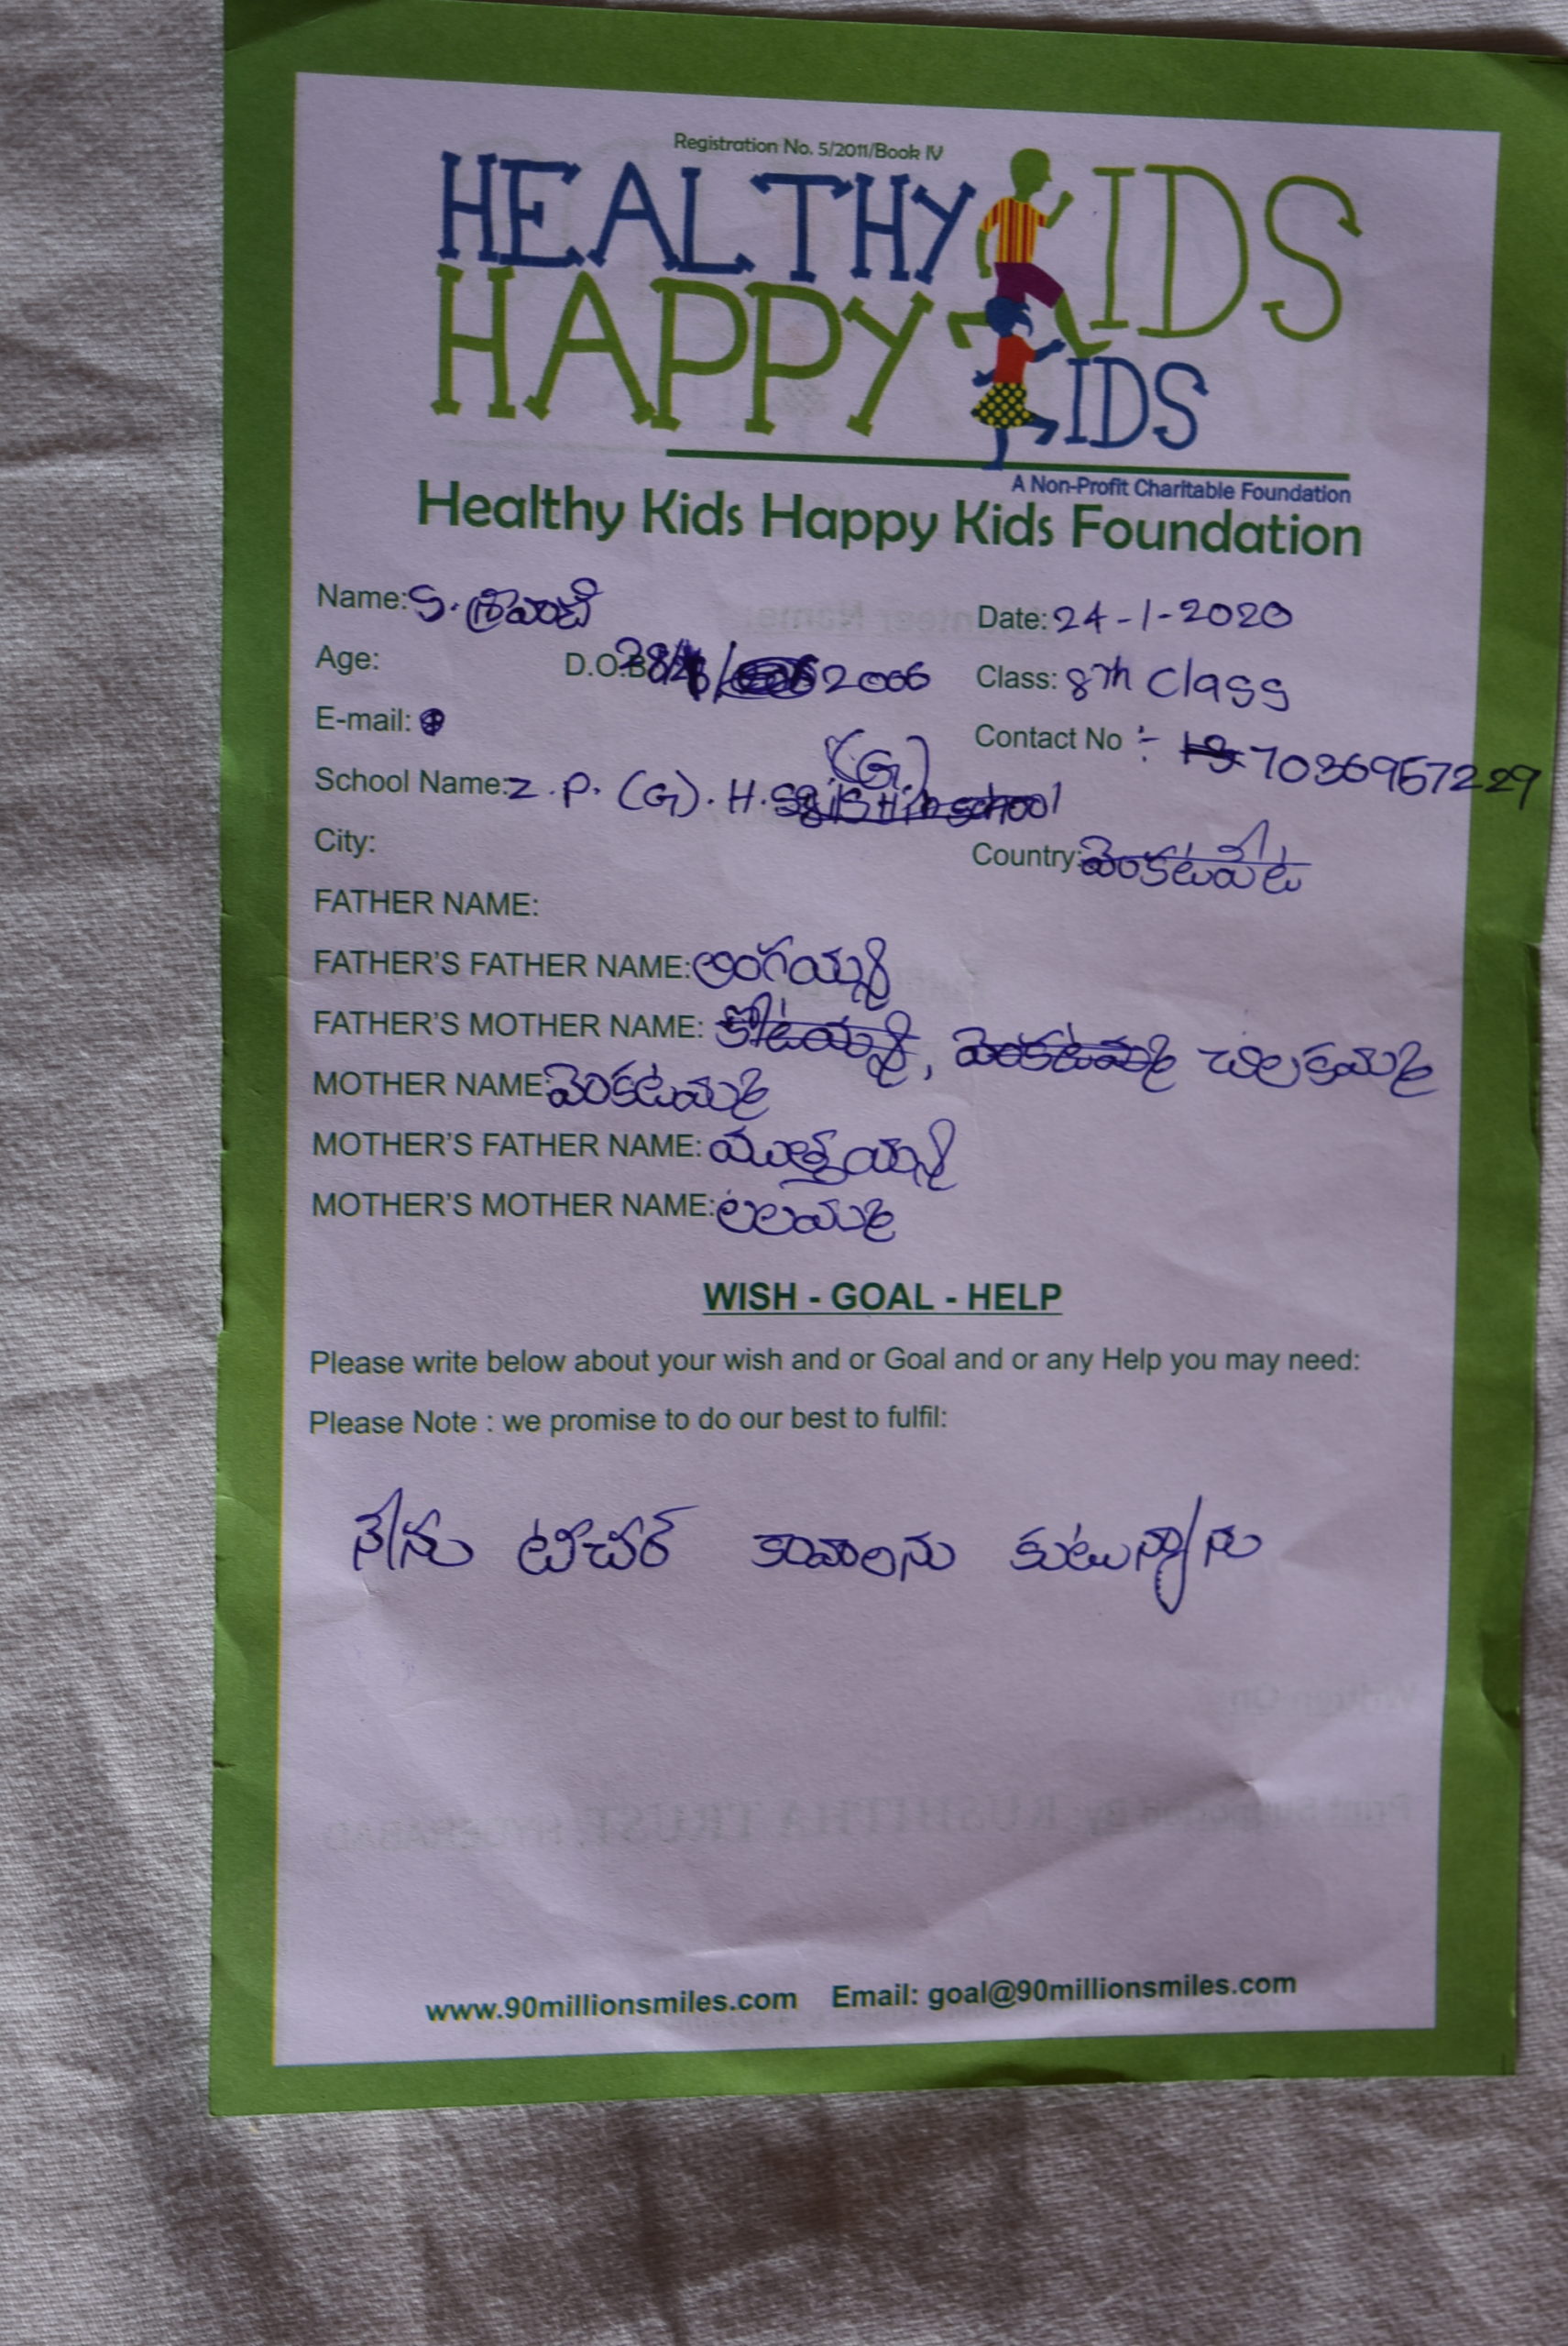 Registration No. 5/2011/Book IV
HEALTHY KIDS
HAPPY KIDS
A Non-Profit Charitable Foundation
Healthy Kids Happy Kids Foundation
Name: S. శ్రావంతి Date: 24-1-2020
Age: D.O.B 2006 Class: 8th Class
E-mail: Contact No :- 70369657229
School Name: Z.P.(G).H.S (G)
City: Country: వెంకటపేట
FATHER NAME:
FATHER'S FATHER NAME: లింగయ్య
FATHER'S MOTHER NAME: కోటయ్య, వెంకటమ్మ చిలకమ్మ
MOTHER NAME: వెంకటమ్మ
MOTHER'S FATHER NAME: ముత్తయ్య
MOTHER'S MOTHER NAME: లలమ్మ
WISH - GOAL - HELP
Please write below about your wish and or Goal and or any Help you may need:
Please Note : we promise to do our best to fulfil:
నేను టీచర్ కావాలను కుటున్నాను
www.90millionsmiles.com Email: goal@90millionsmiles.com